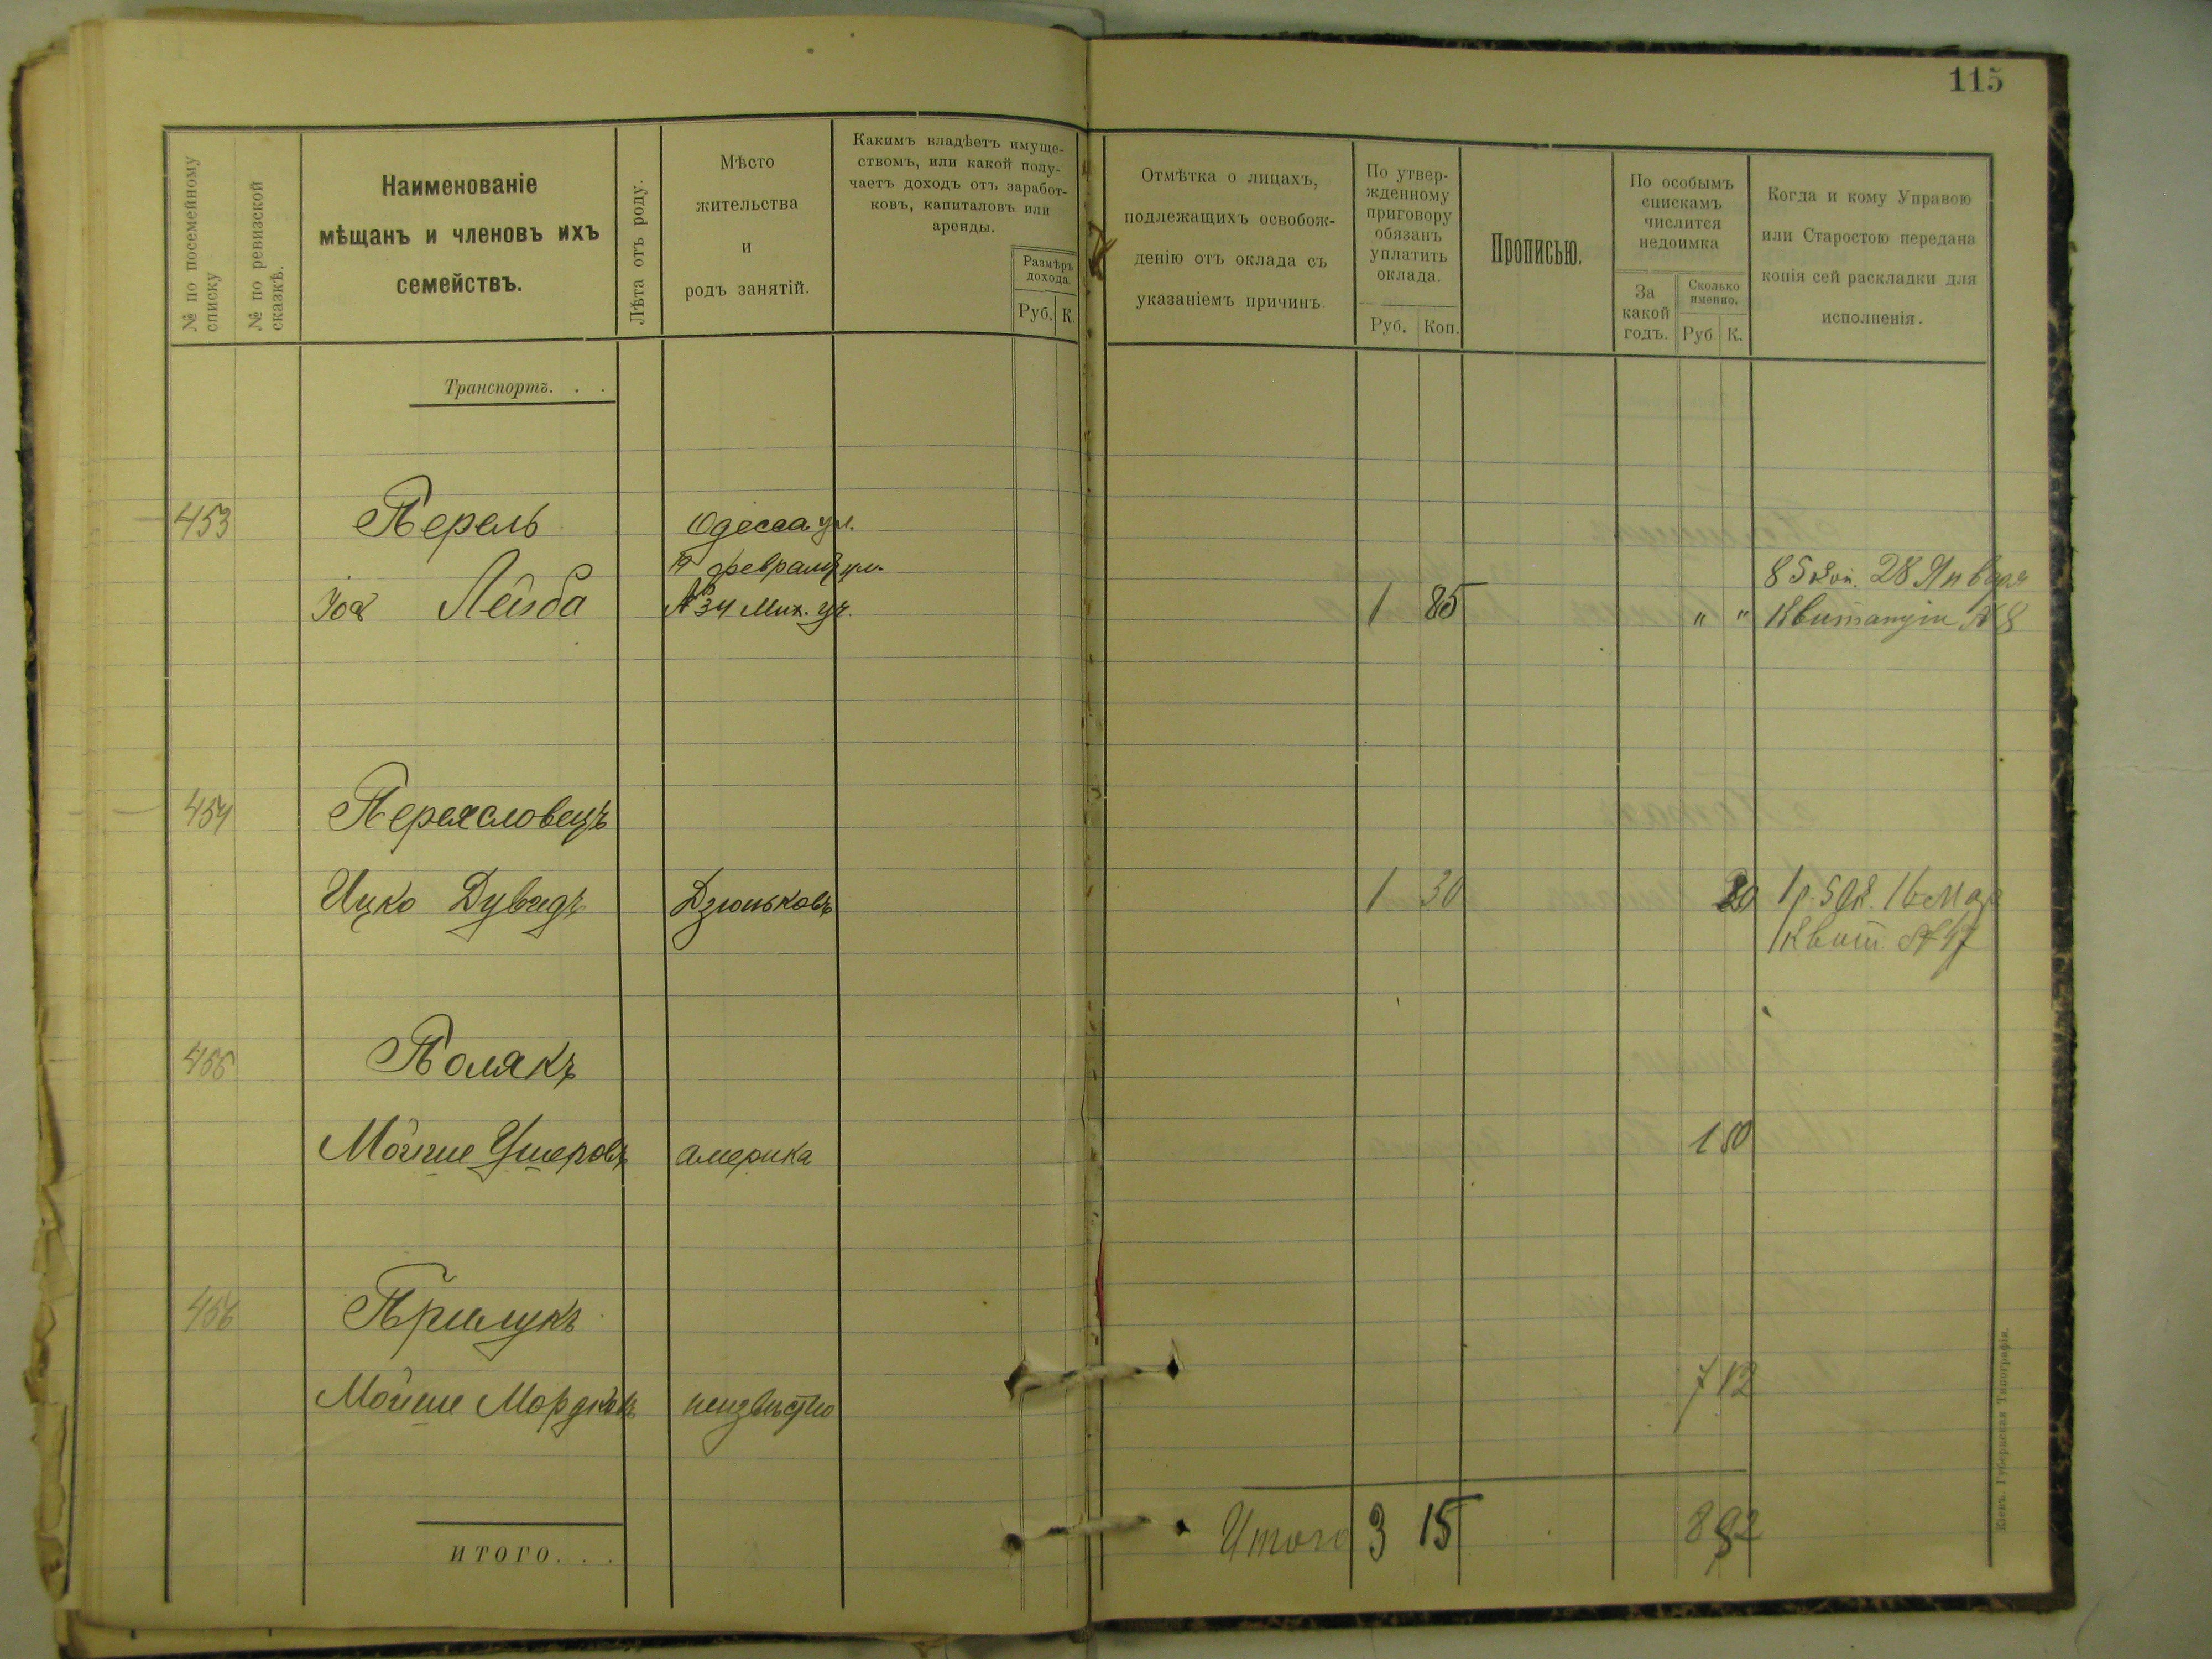 115
№ по посемейному списку
№ по ревизской сказкѣ.
Наименованіе
мѣщанъ и членовъ ихъ
семействъ.
Лѣта отъ роду.
Мѣсто
жительства
и
родъ занятій.
Какимъ владѣетъ имуще-
ствомъ, или какой полу-
чаетъ доходъ отъ заработ-
ковъ, капиталовъ или
аренды.
Размѣръ
дохода.
Руб. К.
Отмѣтка о лицахъ,
подлежащихъ освобож-
денію отъ оклада съ
указаніемъ причинъ.
По утвер-
жденному
приговору
обязанъ
уплатить
оклада.
Руб. Коп.
Прописью.
По особымъ
спискамъ
числится
недоимка
За
какой
годъ.
Сколько
именно.
Руб К.
Когда и кому Управою
или Старостою передана
копія сей раскладки для
исполненія.
Транспортъ. . .
453 Перель Одесса ул.
19 февраля ул. 85 коп. 28 Января
Лейзба № 34 Мих. уч. 1 85 " " Квитанціи № 8
454 Переясловецъ
Ицко Дувидъ Дзюньковъ 1 30 20 1 р. 50 к. 16 Мар
Квит № 47
455 Полякъ
Мойше Ушеровъ америка 1 80
456 Прилукъ
Мойше Мордковъ неизвѣстно 7 12
итого. . . Итого 3 15 8 92
Кіевъ. Губернская Типографія.